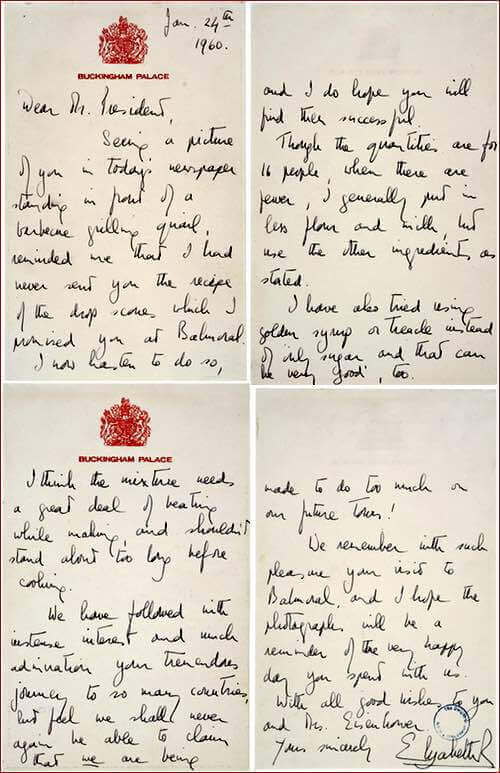 Jan. 24th
1960.
BUCKINGHAM PALACE
Dear Mr. President,
Seeing a picture
of you in today's newspaper
standing in front of a
barbecue grilling quail,
reminded me that I had
never sent you the recipe
of the drop scones which I
promised you at Balmoral.
I now hasten to do so,
and I do hope you will
find them successful.
Though the quantities are for
16 people, when there are
fewer, I generally put in
less flour and milk, but
use the other ingredients as
stated.
I have also tried using
golden syrup or treacle instead
of only sugar and that can
be very good, too.
BUCKINGHAM PALACE
I think the mixture needs
a great deal of beating
while making, and shouldn't
stand about too long before
cooking.
We have followed with
intense interest and much
admiration your tremendous
journey to so many countries,
but feel we shall never
again be able to claim
that we are being
made to do too much on
our future tours!
We remember with such
pleasure your visit to
Balmoral, and I hope the
photographs will be a
reminder of the very happy
day you spent with us.
With all good wishes to you
and Mrs. Eisenhower.
Yours sincerely
Elizabeth R